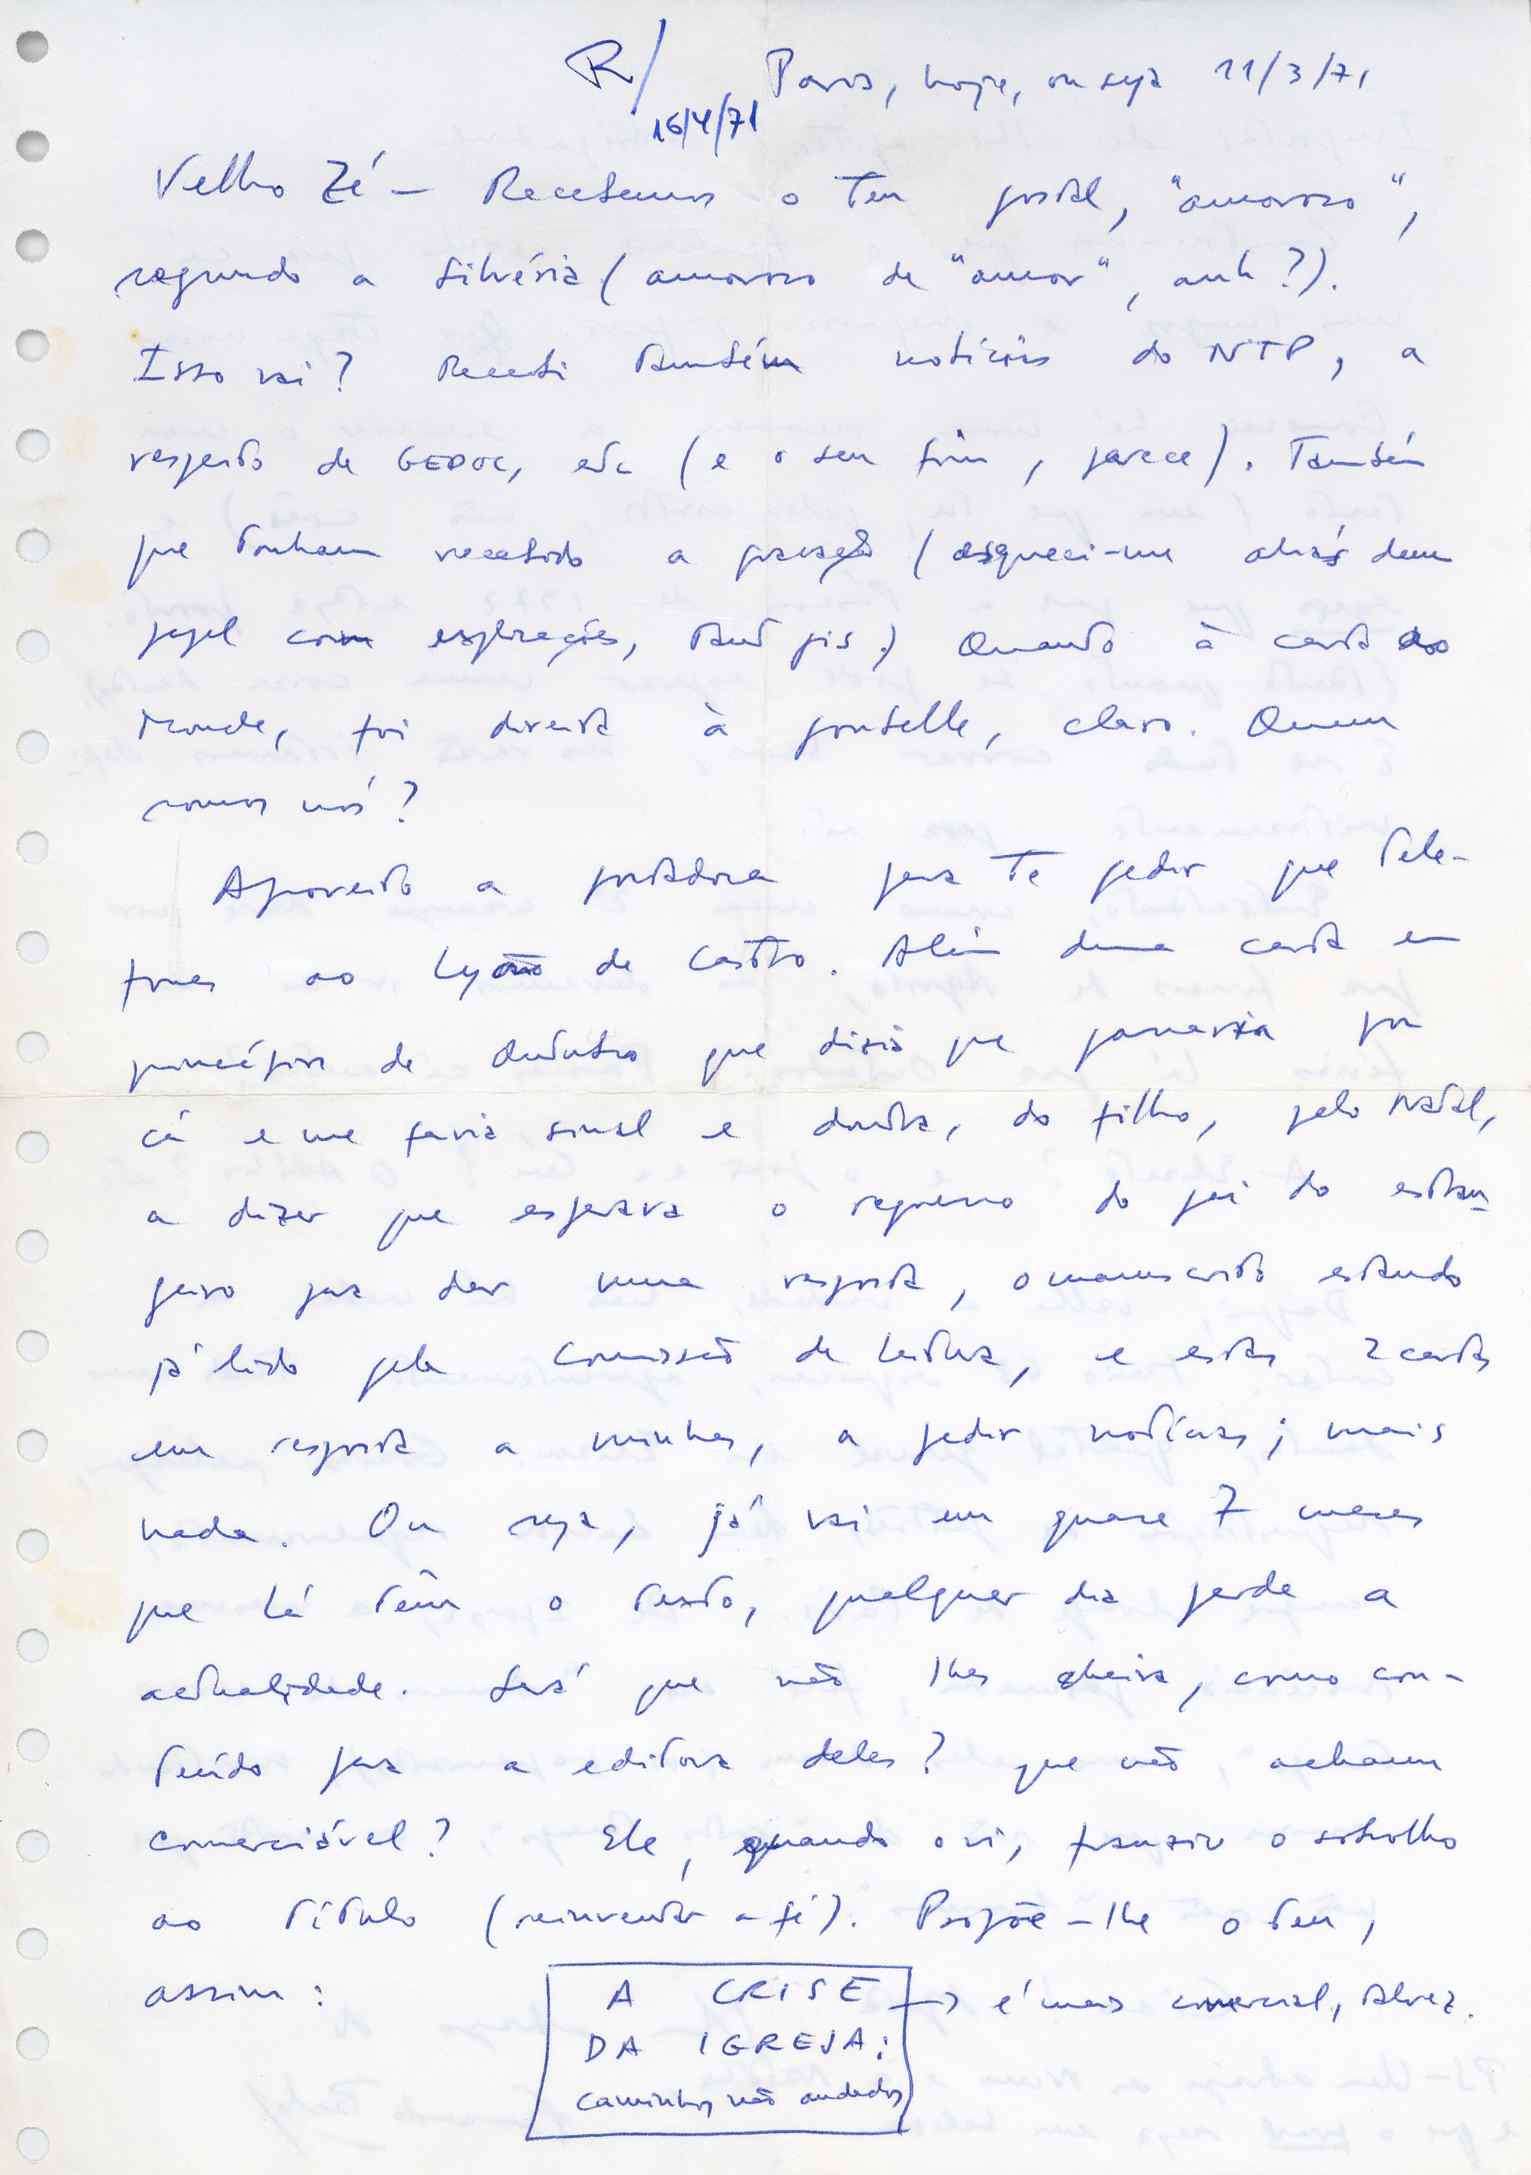 R/ Paris, hoje, ou seja 11/3/71
16/4/71
Velho Zé – Recebemos o teu postal, "amoroso",
segundo a Silvéria (amoroso de "amor", anh?).
Isso vai? Recebi também notícias do NTP, a
respeito de GEDOC, etc (e o seu fim, parece). Também
que tenham recebido a gravação (esqueci-me aliás dum
papel com explicações, tant pis.) Quanto à carta ao
Monde, foi direita à poubelle, claro. Quem
somos nós?
Aproveito a portadora para te pedir que tele-
fones ao Lyon de Castro. Além duma carta em
princípios de Outubro que dizia que passaria por
cá e me faria sinal e doutra, do filho, pelo Natal,
a dizer que esperava o regresso do pai do estran-
geiro para dar uma resposta, o manuscrito estando
já lido pela Comissão de Leitura, e estas 2 cartas
em resposta a minhas, a pedir notícias; mais
nada. Ou seja, já vai em quase 7 meses
que lá têm o texto, qualquer dia perde a
actualidade. Será que não lhes cheira, como con-
teúdo para a editora deles? que não acham
comerciável? Ele, quando o vi, franziu o sobrolho
ao título (reinventar a fé). Propõe-lhe o teu,
assim: A CRISE → é mais comercial, talvez.
DA IGREJA:
caminhos não andados